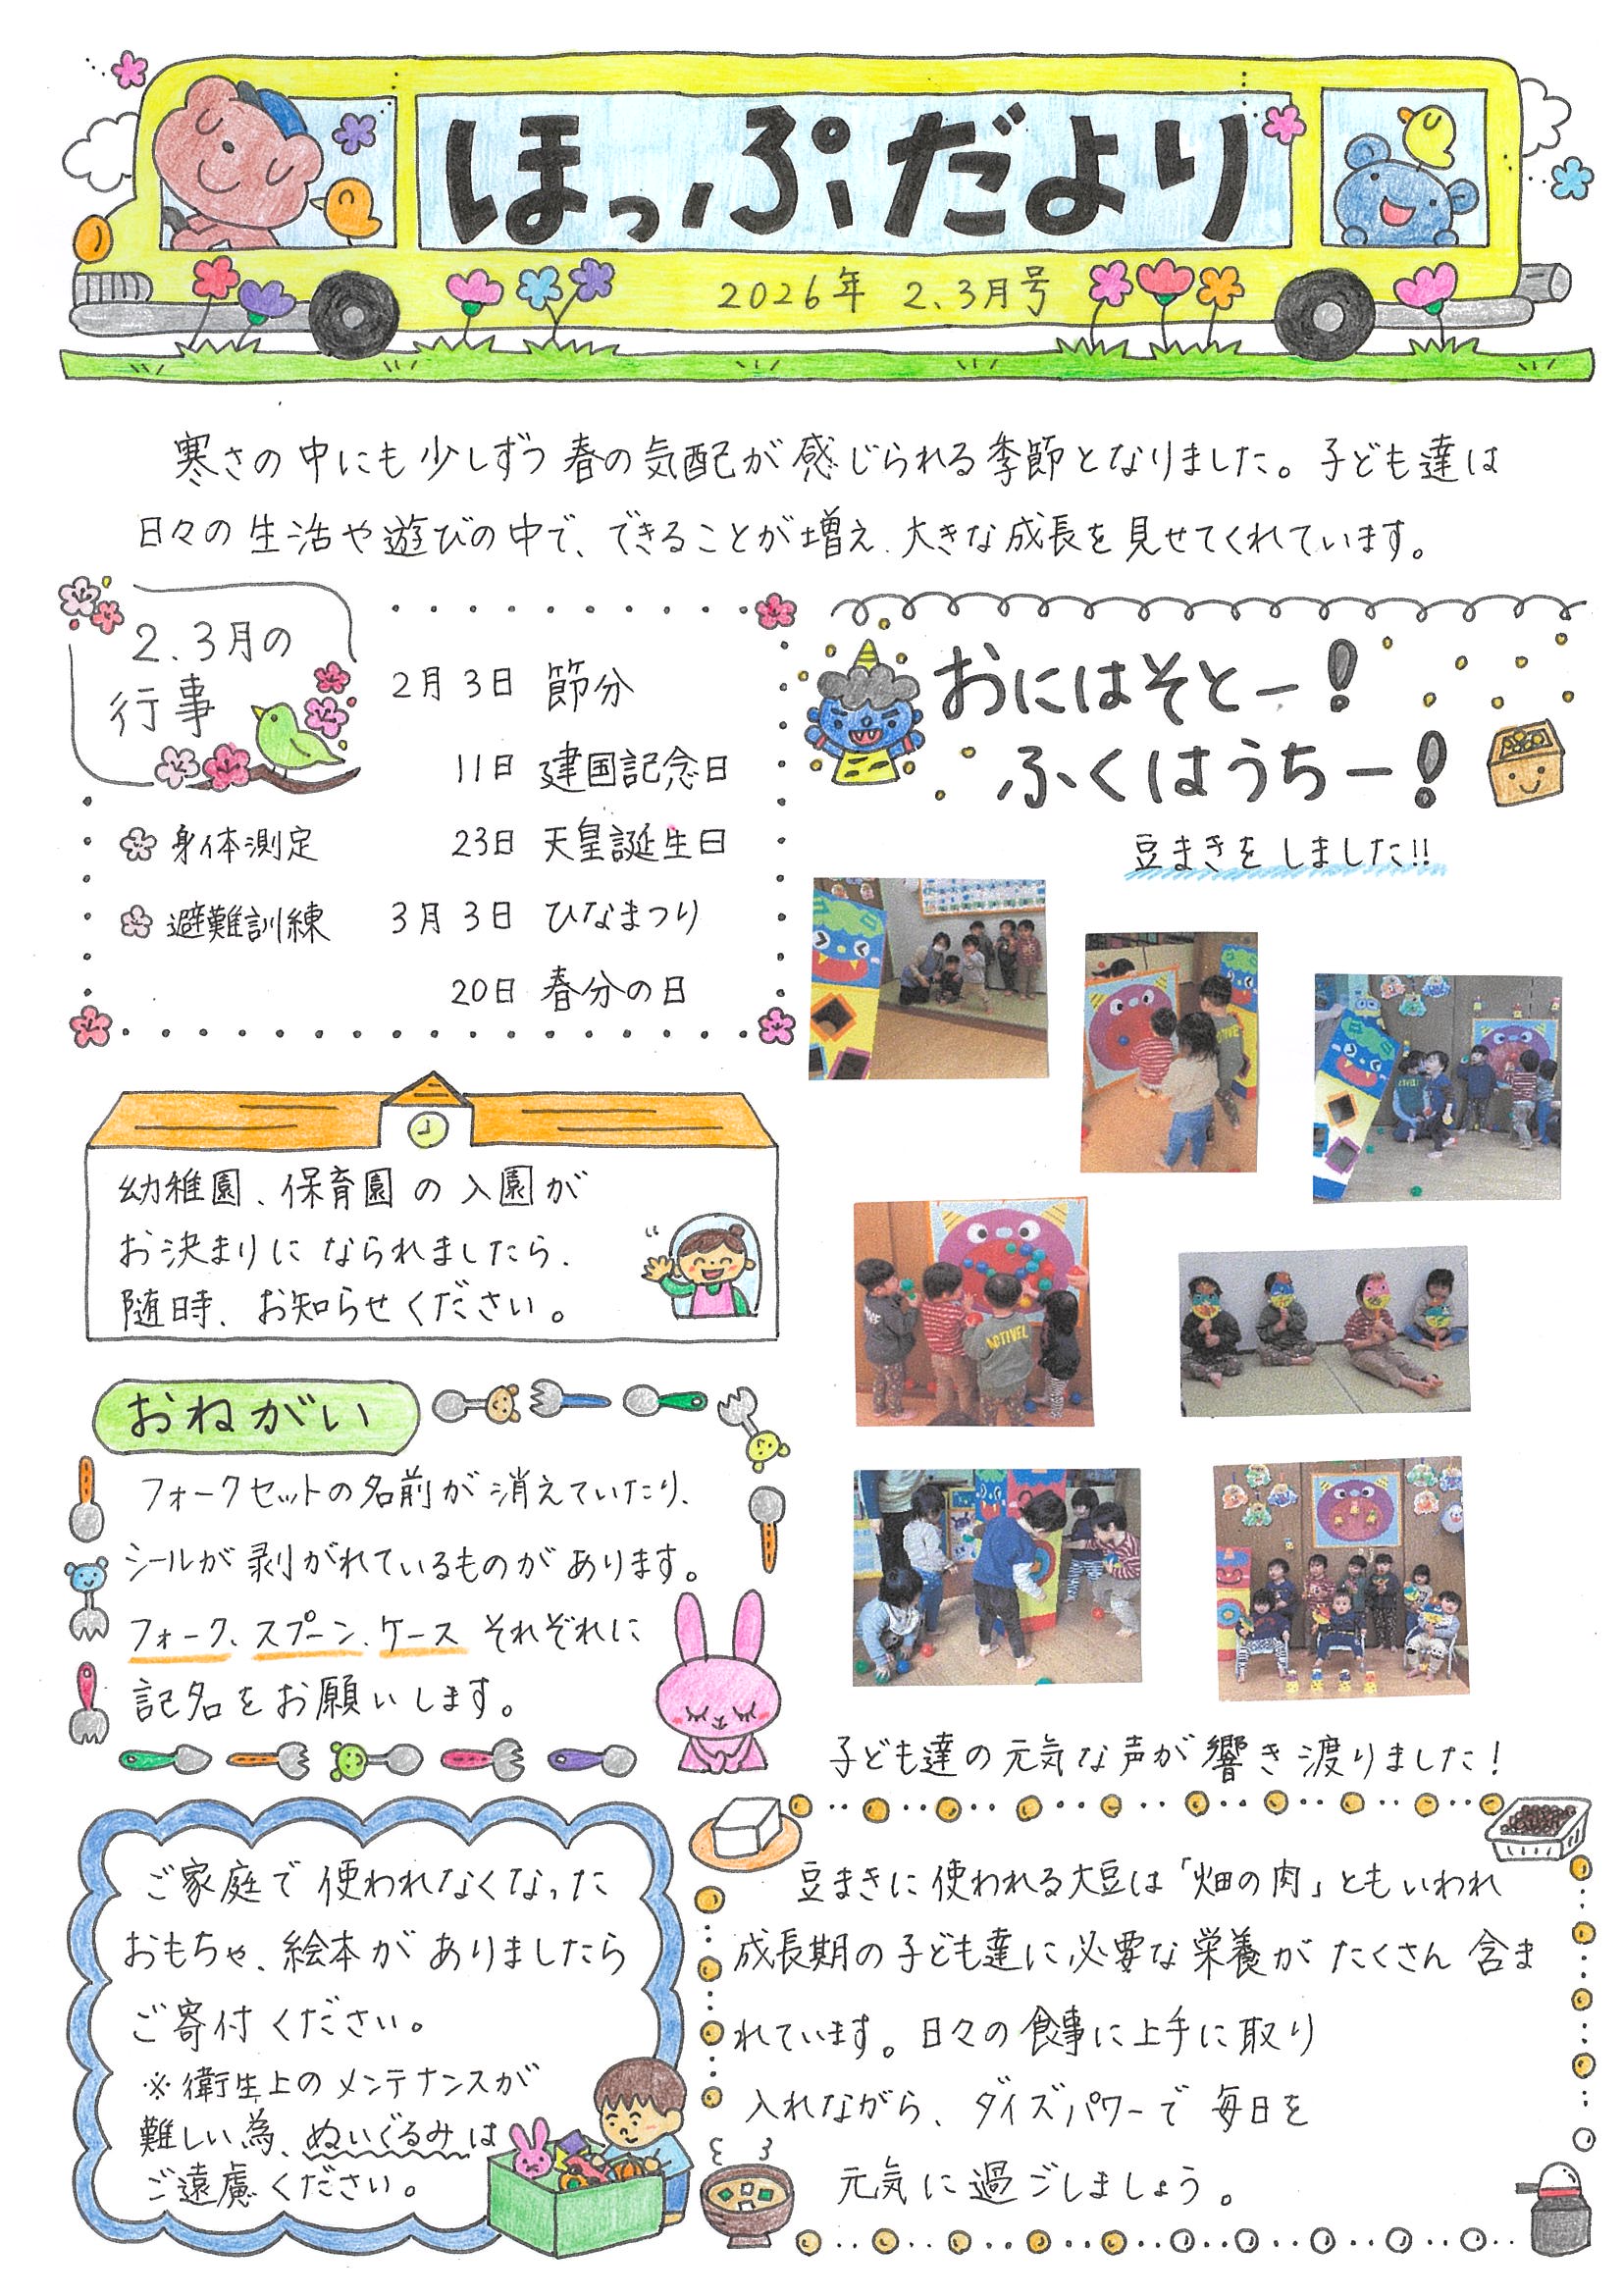 ほっぷだより
2026年 2、3月号
寒さの中にも少しずつ春の気配が感じられる季節となりました。子ども達は
日々の生活や遊びの中で、できることが増え、大きな成長を見せてくれています。
2、3月の
行事
身体測定
避難訓練
2月 3日 節分
11日 建国記念日
23日 天皇誕生日
3月 3日 ひなまつり
20日 春分の日
おにはそとー!
ふくはうちー!
豆まきをしました!!
幼稚園、保育園の入園が
お決まりになられましたら、
随時、お知らせください。
おねがい
フォークセットの名前が消えていたり、
シールが剥がれているものがあります。
フォーク、スプーン、ケースそれぞれに
記名をお願いします。
子ども達の元気な声が響き渡りました!
ご家庭で使われなくなった
おもちゃ、絵本がありましたら
ご寄付ください。
※衛生上のメンテナンスが
難しい為、ぬいぐるみは
ご遠慮ください。
豆まきに使われる大豆は「畑の肉」ともいわれ
成長期の子ども達に必要な栄養がたくさん含ま
れています。日々の食事に上手に取り
入れながら、ダイズパワーで毎日を
元気に過ごしましょう。